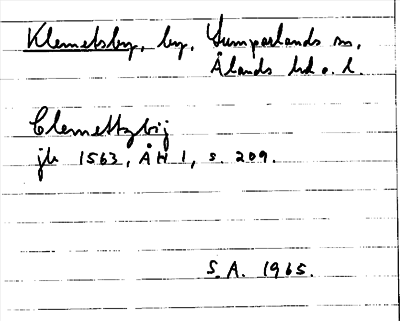 Klemetsby, by, Lumparlands sn,
Ålands hd o. l.
Clemettzbij
jb 1563, ÅH 1, s. 209.
S.A. 1965.